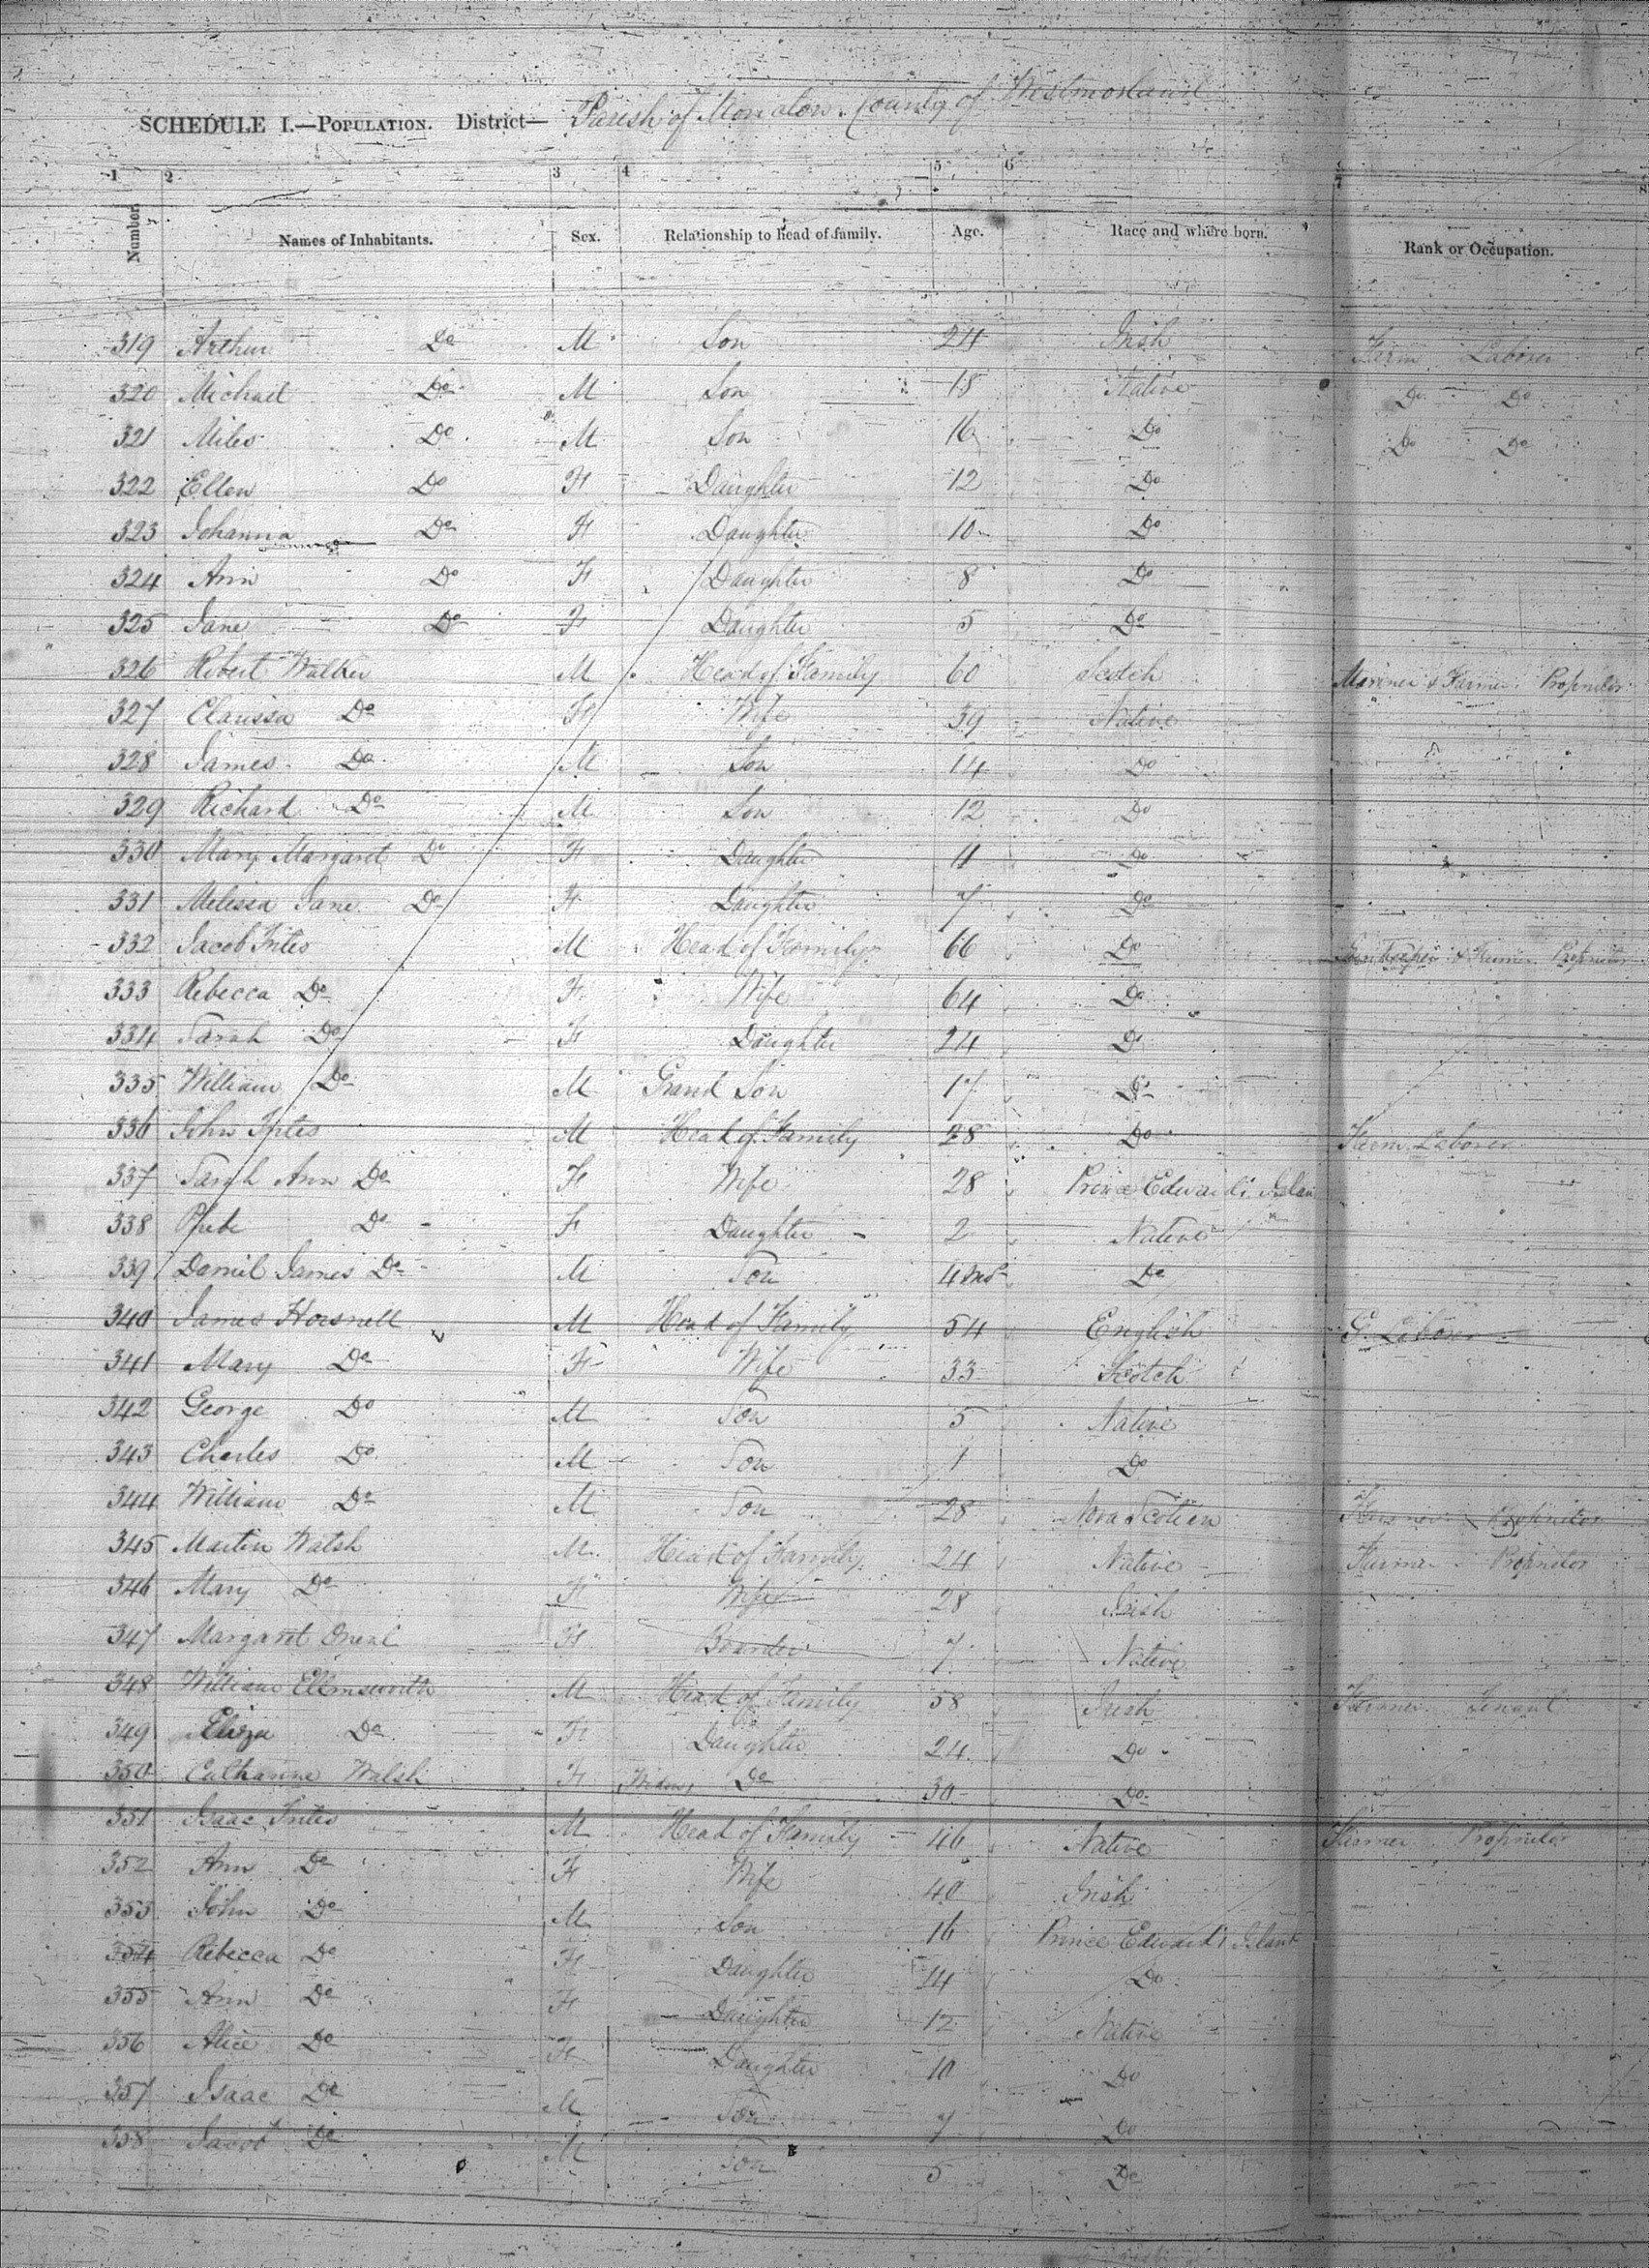 SCHEDULE I.—POPULATION. District— Parish of Moncton. County of Westmorland
1 2 3 4 5 6 7 8
Number. Names of Inhabitants. Sex. Relationship to head of family. Age. Race and where born. Rank or Occupation.
319 Arthur Do M Son 24 Irish Farm Laborer
320 Michael Do M Son 18 Native Do Do
321 Miles Do M Son 16 Do Do Do
322 Ellen Do F Daughter 12 Do
323 Johanna Do F Daughter 10 Do
324 Ann Do F Daughter 8 Do
325 Jane Do F Daughter 5 Do
326 Robert Walker M Head of Family 60 Scotch Mariner & Farmer Proprietor
327 Clarissa Do F Wife 39 Native
328 James Do M Son 14 Do
329 Richard Do M Son 12 Do
330 Mary Margaret Do F Daughter 11 Do
331 Melissa Jane Do F Daughter 7 Do
332 Jacob M Head of Family 66 Do & Farmer Proprietor
333 Rebecca Do F Wife 64 Do
334 Sarah Do F Daughter 24 Do
335 William Do M Grand Son 17 Do
336 John M Head of Family 28 Do Farm Laborer
337 Sarah Ann Do F Wife 28 Prince Edward's Islan
338 Phebe Do F Daughter 2 Native
339 Daniel James Do M Son 4 mos Do
340 James Horsnell M Head of Family 54 English G. Laborer
341 Mary Do F Wife 33 Scotch
342 George Do M Son 5 Native
343 Charles Do M Son 1 Do
344 William Do M Son 28 Nova Scotien Farmer Proprietor
345 Martin Walsh M Head of Family 24 Native Farmer Proprietor
346 Mary Do F Wife 28 Irish
347 Margaret Oneal F Boarder 7 Native
348 William Ellmsworth M Head of Family 58 Irish Farmer
349 Eliza Do F Daughter 24 Do
350 Catharine Walsh F Widow, Do 30 Do
351 Isaac M Head of Family 46 Native Farmer Proprietor
352 Ann Do F Wife 40 Irish
353 John Do M Son 16 Prince Edward's Island
354 Rebecca Do F Daughter 14 Do
355 Ann Do F Daughter 12 Native
356 Alice Do F Daughter 10 Do
357 Isaac Do M Son 7 Do
358 Jacob Do M Son 5 Do